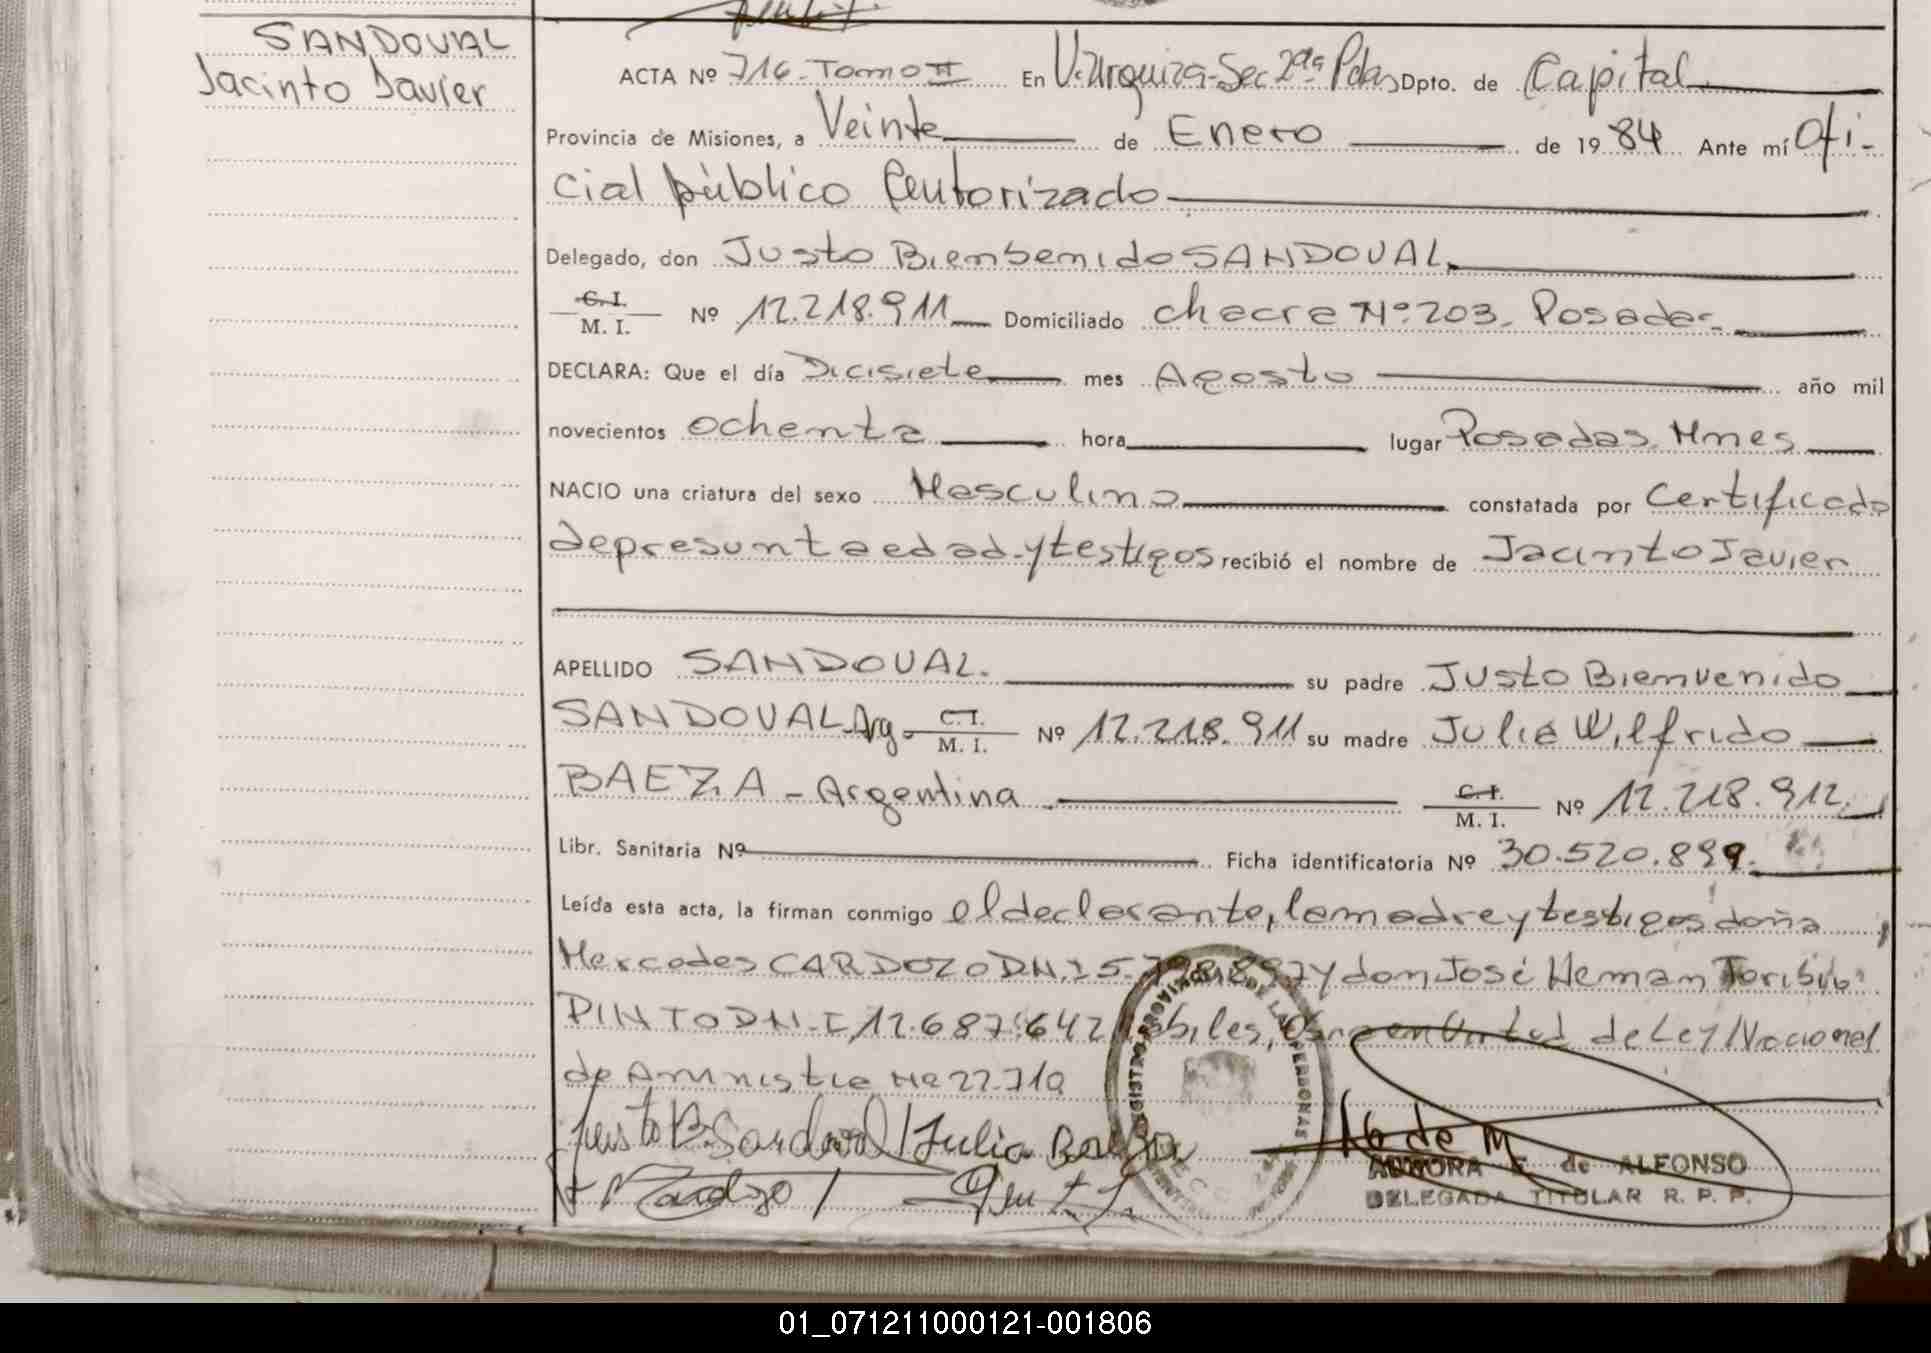 SANDOVAL
Jacinto Javier
ACTA Nº 716-Tomo II En V. Urquiza-Sec 2ªs Pdas Dpto. de Capital
Provincia de Misiones, a Veinte de Enero de 1984 Ante mí Ofi-
cial público Autorizado
Delegado, don Justo Bienbenido SANDOVAL
C. I.
M. I. Nº 12.218.911 Domiciliado chacra Nº 203. Posadas
DECLARA: Que el día Dicisiete mes Agosto año mil
novecientos ochenta hora lugar Posadas. Mnes
NACIO una criatura del sexo Masculino constatada por Certificado
de presunta edad y testigos recibió el nombre de Jacinto Javier
APELLIDO SANDOVAL. su padre Justo Bienvenido
SANDOVAL Arg- C. I. M. I. Nº 12.218.911 su madre Julia Wilfrido
BAEZA - Argentina C. I. M. I. Nº 12.218.912
Libr. Sanitaria Nº Ficha identificatoria Nº 30.520.899.
Leída esta acta, la firman conmigo el declarante, la madre y testigos doña
Mercedes CARDOZO y don José Hernan Toribio
PINTO DN-I 12.687.642 en Virtud de Ley Nacional
de Amnistia Nº 22.710
Justo B. Sandoval / Julia Baeza
AURORA de ALFONSO
DELEGADA TITULAR R. P. P.
01_071211000121-001806